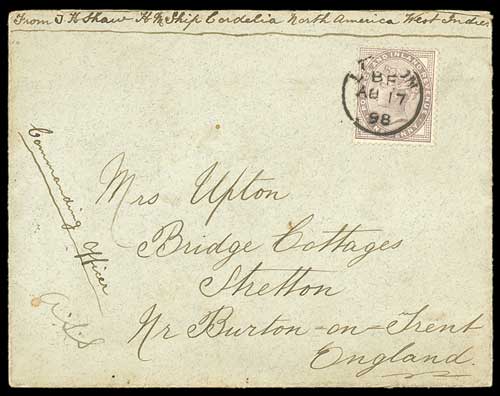 From J H Shaw H M Ship Cordelia North America West Indies
POSTAGE AND INLAND REVENUE
LONDON
AU 17
98
Commanding Officer
Mrs Upton
Bridge Cottages
Stretton
Nr Burton-on-Trent
England.